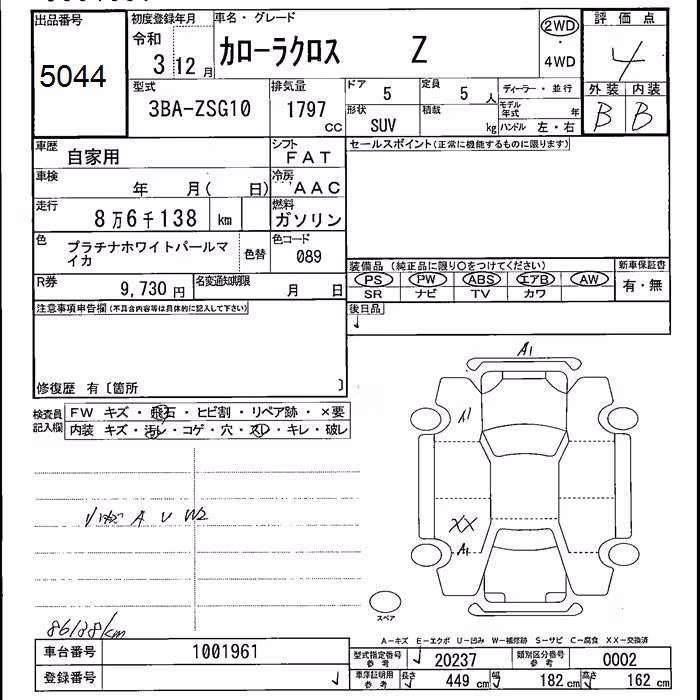 出品番号 初度登録年月 車名・グレード 2WD 評価点
5044 令和 3 12月 カローラクロス Z ・ 4WD 4
型式 排気量 ドア 5 定員 5人 ディーラー・並行 外装 内装
3BA-ZSG10 1797cc 形状 SUV 積載 kg モデル年式 年 B B
ハンドル 左・右
車歴 自家用 シフト FAT セールスポイント(正常に機能するものに限ります)
車検 年 月( 日) 冷房 AAC
走行 8万6千138 km 燃料 ガソリン
色 プラチナホワイトパールマイカ 色替 色コード 089
装備品 (純正品に限り○をつけてください) 新車保証書
R券 9,730円 名変通知期限 月 日 PS PW ABS エアB AW 有・無
SR ナビ TV カワ
注意事項申告欄(不具合内容等は具体的に記入して下さい) 後日品
修復歴 有〔箇所 〕
検査員記入欄 FW キズ・飛石・ヒビ割・リペア跡・×要
内装 キズ・汚レ・コゲ・穴・スレ・キレ・破レ
A1
A1
XX
A1
A U W2
スペア
86138km
A-キズ E-エクボ U-凹み W-補修跡 S-サビ C-腐食 XX-交換済
車台番号 1001961 型式指定番号 参考 20237 類別区分番号 参考 0002
登録番号 車庫証明用 参考 長さ 449cm 幅 182cm 高さ 162cm